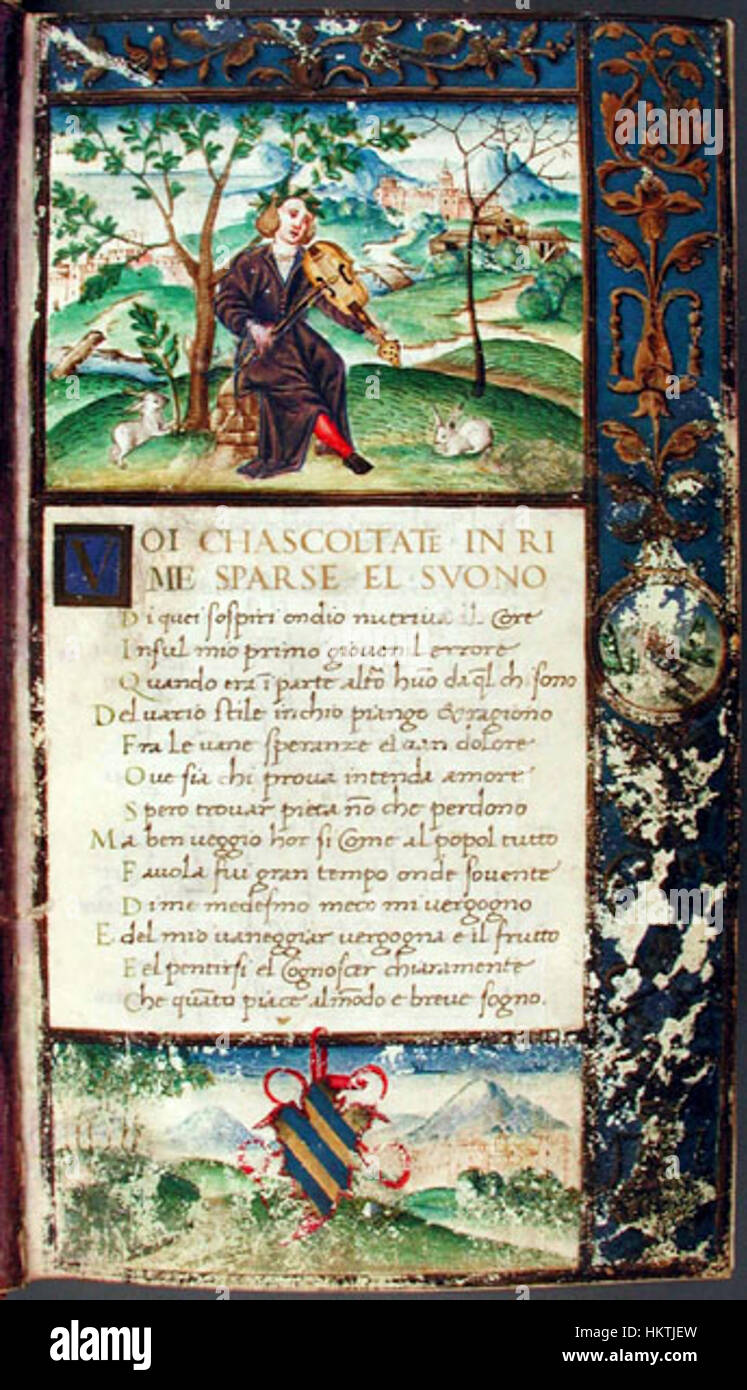 VOI CHASCOLTATE IN RI
ME SPARSE EL SVONO
Di quei sospiri ondio nutriva il Core
In sul mio primo giovenil errore
Quando era ī parte altro huō da ql ch sono
Del uario stile in chio piango & ragiono
Fra le uane speranze el uan dolore
Oue sia chi prova intenda amore
Spero trouar pieta nō che perdono
Ma ben ueggio hor si Come al popol tutto
Fauola fui gran tempo onde sovente
Di me medesmo meco mi vergogno
E del mio uaneggiar vergogna e il frutto
E el pentirsi el Cognoscer chiaramente
Che quāto piace al mōdo e breve sogno.
alamy
Image ID: HKTJEW
www.alamy.com